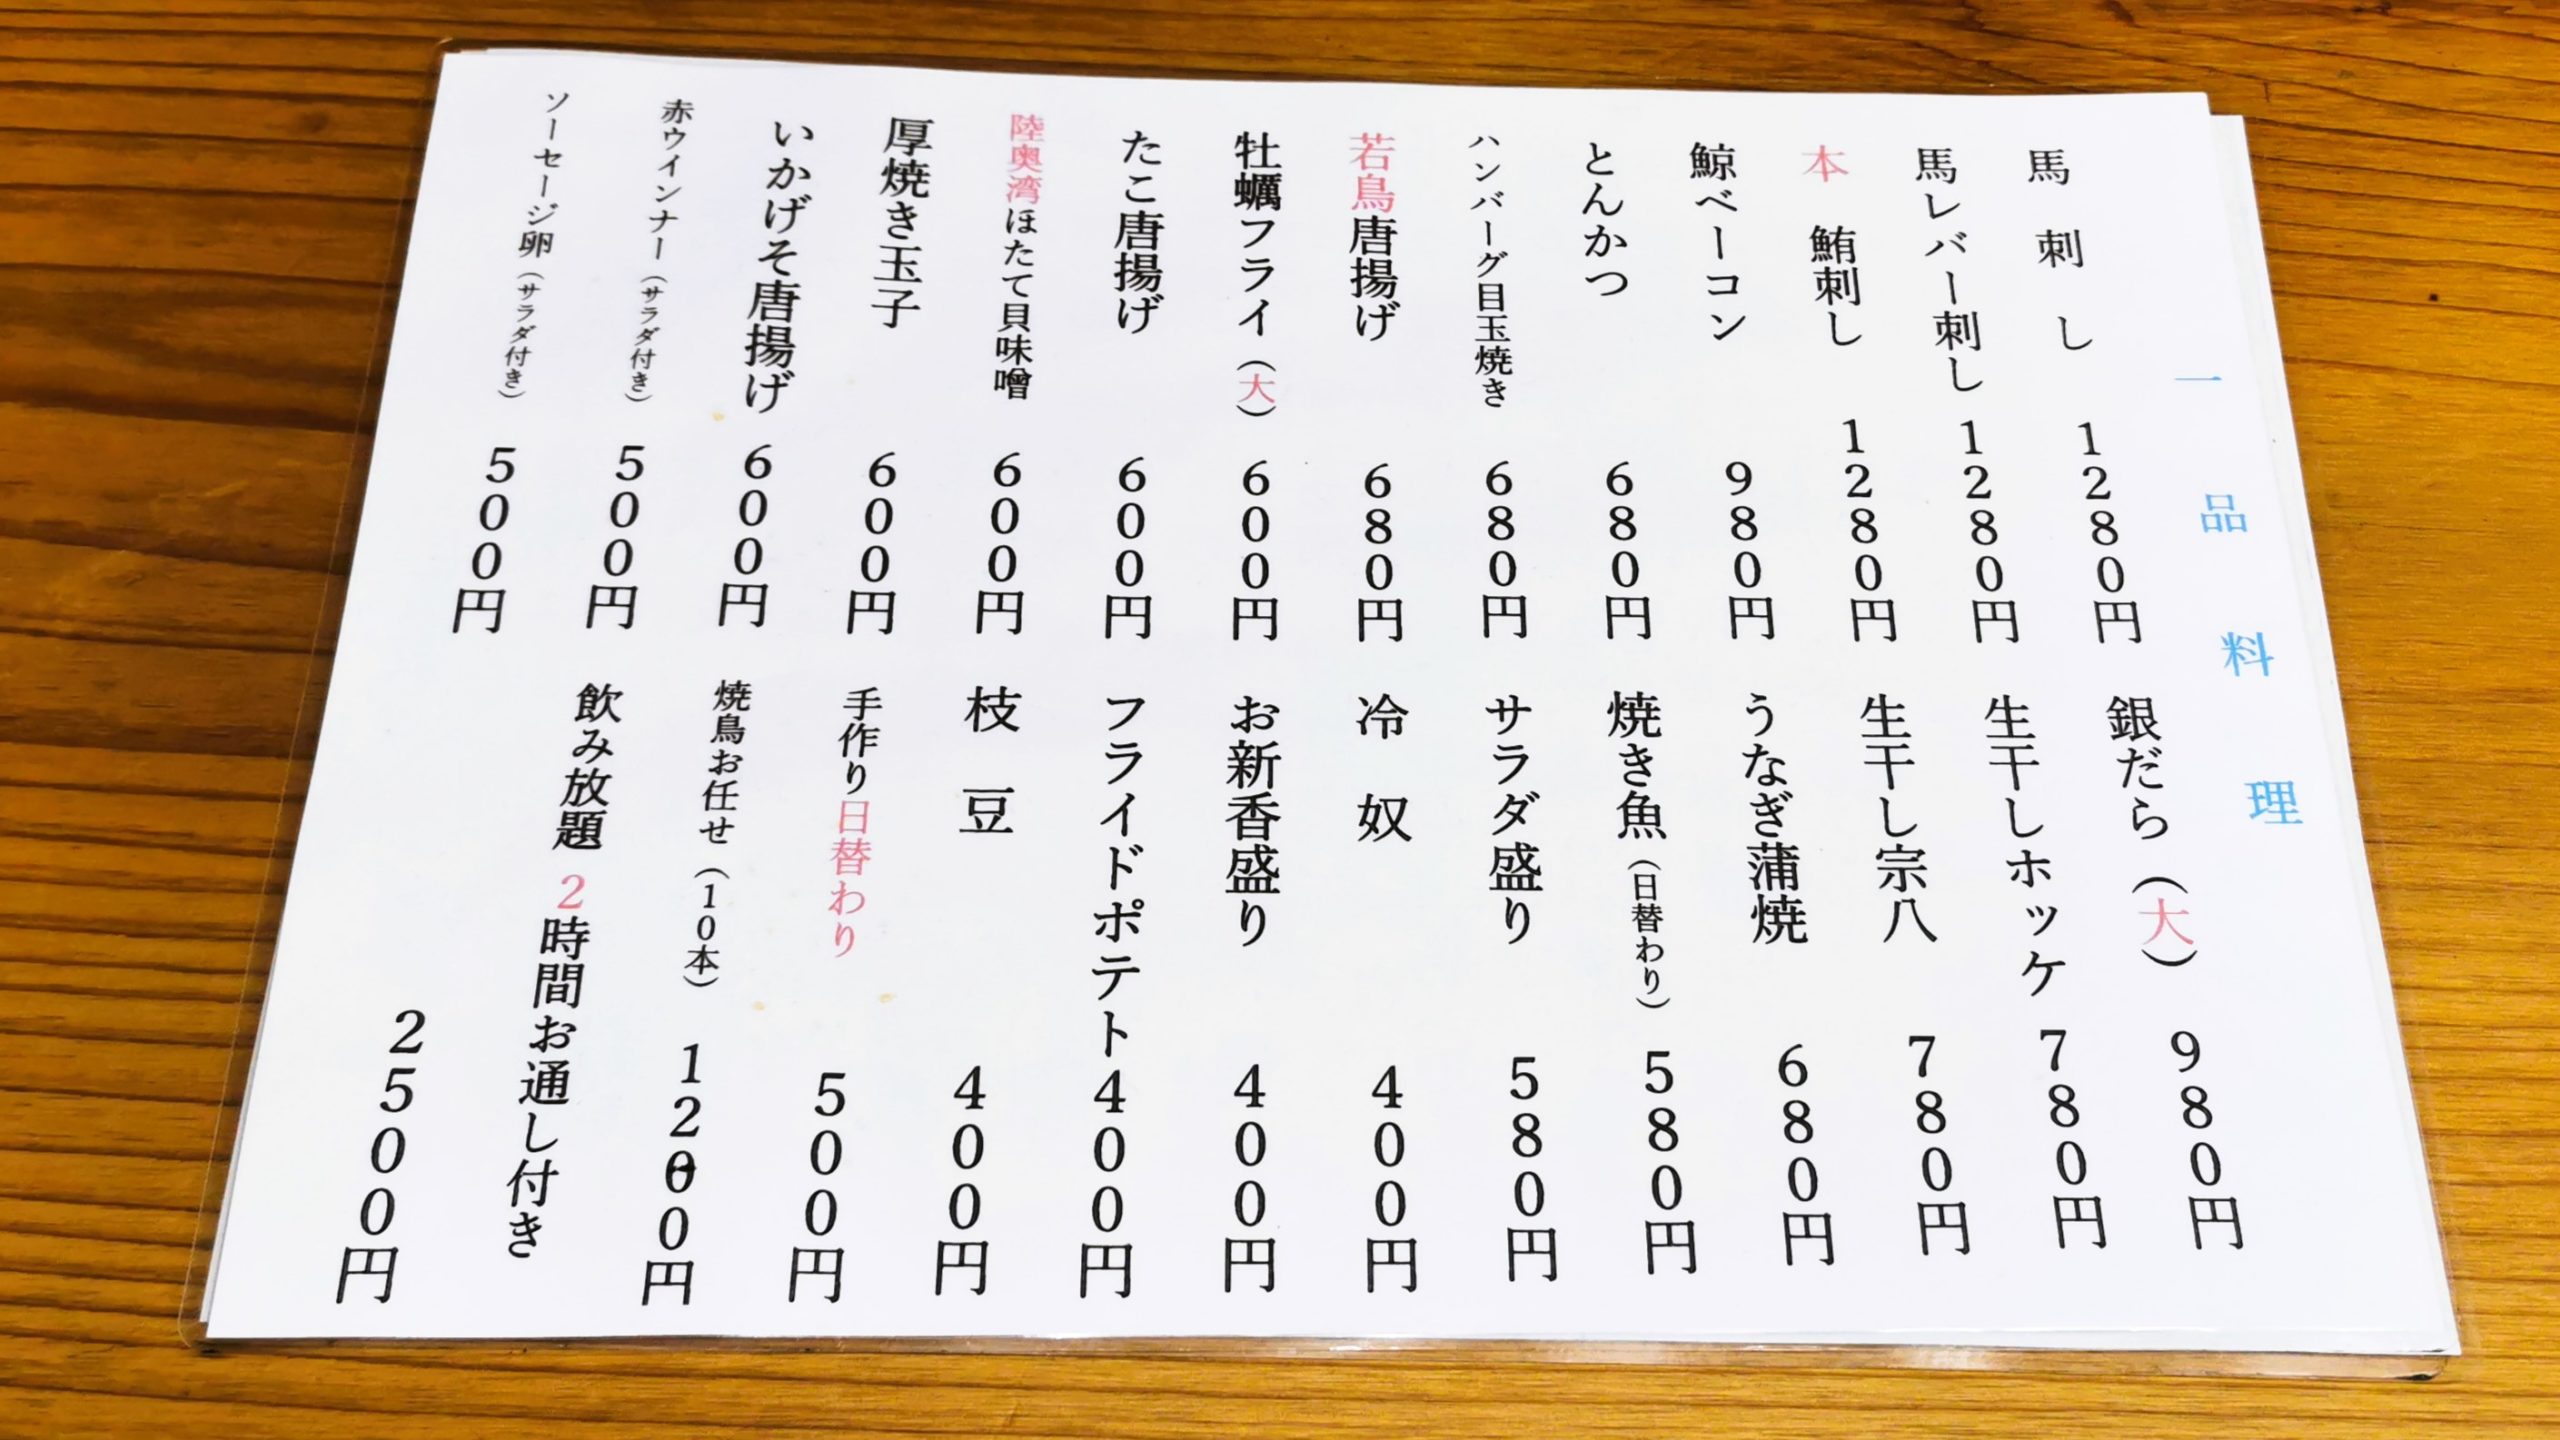 一品料理
馬刺し 1280円
馬レバー刺し 1280円
本鮪刺し 1280円
鯨ベーコン 980円
とんかつ 680円
ハンバーグ目玉焼き 680円
若鳥唐揚げ 680円
牡蠣フライ(大) 600円
たこ唐揚げ 600円
陸奥湾ほたて貝味噌 600円
厚焼き玉子 600円
いかげそ唐揚げ 600円
赤ウインナー(サラダ付き) 500円
ソーセージ卵(サラダ付き) 500円
銀だら(大) 980円
生干しホッケ 780円
生干し宗八 780円
うなぎ蒲焼 680円
焼き魚(日替わり) 580円
サラダ盛り 580円
冷奴 400円
お新香盛り 400円
フライドポテト 400円
枝豆 400円
手作り日替わり 500円
焼鳥お任せ(10本) 1200円
飲み放題2時間お通し付き
2500円